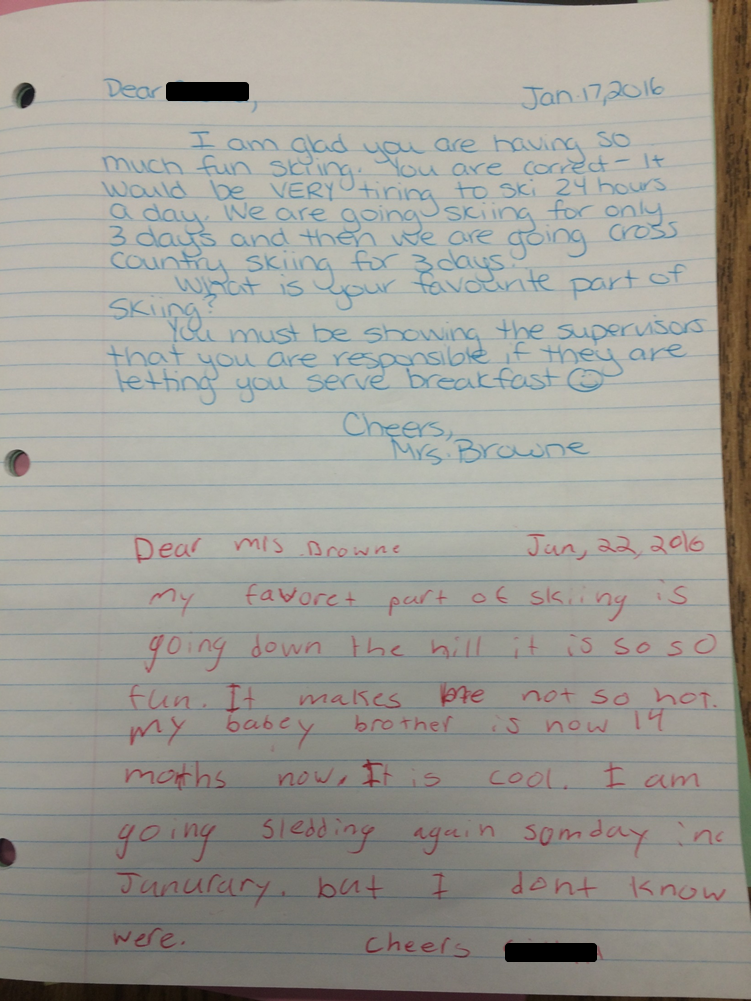 Dear , Jan.17,2016
I am glad you are having so
much fun skiing. You are correct - It
would be VERY tiring to ski 24 hours
a day. We are going skiing for only
3 days and then we are going cross
country skiing for 3 days.
What is your favourite part of
skiing?
You must be showing the supervisors
that you are responsible if they are
letting you serve breakfast ☺
Cheers,
Mrs. Browne
Dear mrs Browne Jan, 22, 2016
my favoret part of skiing is
going down the hill it is so so
fun. It makes me not so hot.
my babey brother is now 14
moths now. It is cool. I am
going sledding again somday in
Janurary. but I dont know
were. cheers